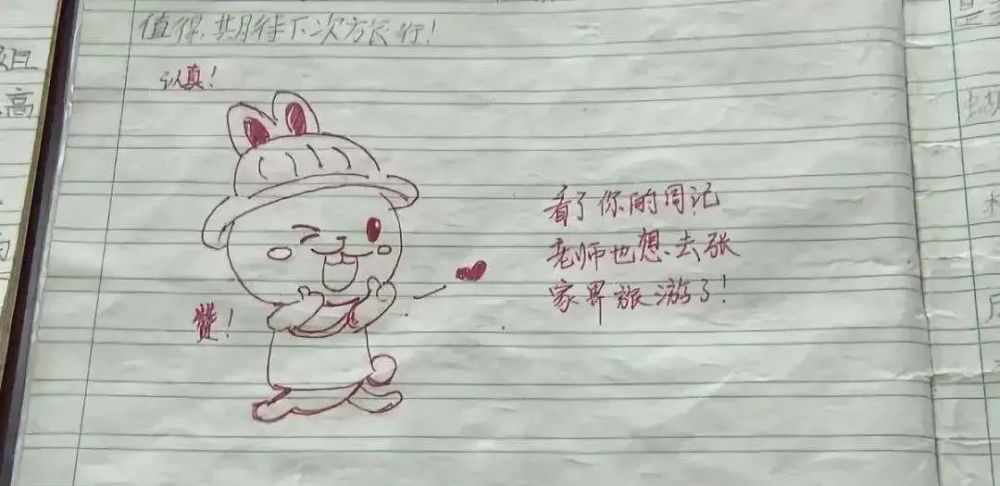 值得,期待下次方旅行!
认真!
看了你的周记
老师也想去张
家界旅游了!
赞!
高